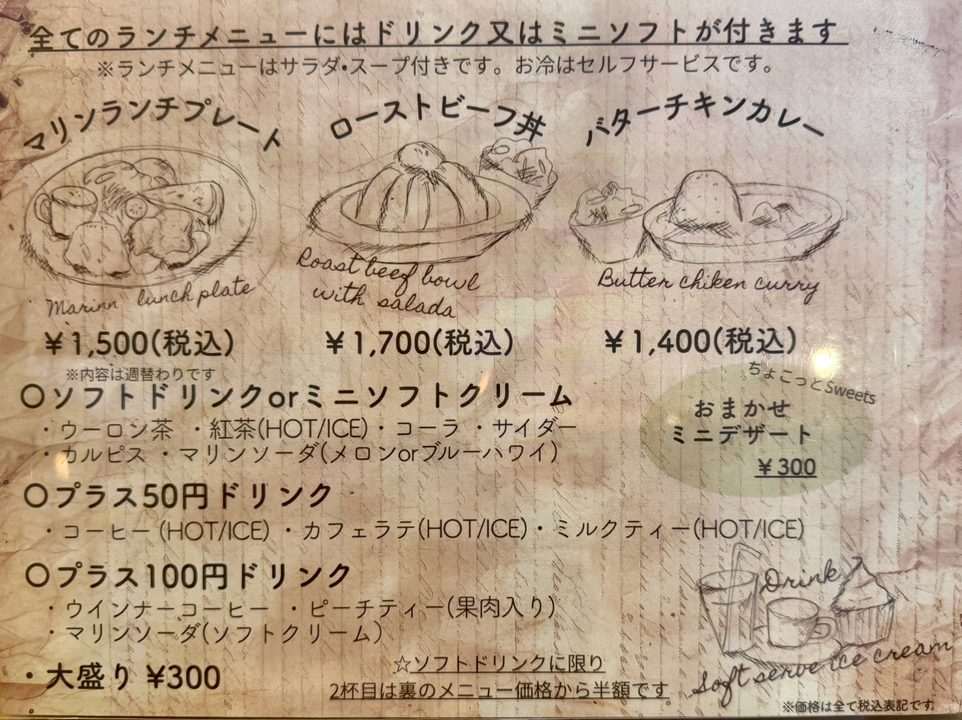 全てのランチメニューにはドリンク又はミニソフトが付きます
※ランチメニューはサラダ・スープ付きです。お冷はセルフサービスです。
マリンランチプレート
ローストビーフ丼
バターチキンカレー
Marinn lunch plate
Roast beef bowl
with salada
Butter chiken curry
¥1,500(税込)
¥1,700(税込)
¥1,400(税込)
※内容は週替わりです
〇ソフトドリンクorミニソフトクリーム
・ウーロン茶 ・紅茶(HOT/ICE)・コーラ ・サイダー
・カルピス ・マリンソーダ(メロンorブルーハワイ)
ちょこっとSweets
おまかせ
ミニデザート
¥300
〇プラス50円ドリンク
・コーヒー(HOT/ICE) ・カフェラテ(HOT/ICE)・ミルクティー(HOT/ICE)
〇プラス100円ドリンク
・ウインナーコーヒー ・ピーチティー(果肉入り)
・マリンソーダ(ソフトクリーム)
・大盛り ¥300
☆ソフトドリンクに限り
2杯目は裏のメニュー価格から半額です
Drink
Soft serve ice cream
※価格は全て税込表記です